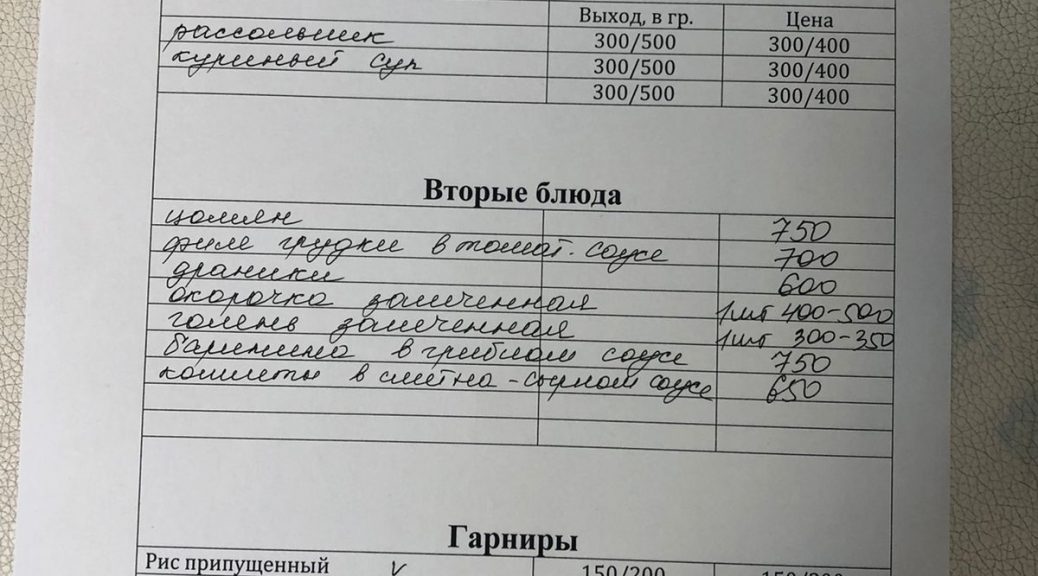 Выход, в гр. Цена
рассольник 300/500 300/400
куриный суп 300/500 300/400
300/500 300/400
Вторые блюда
цомян 750
филе грудки в томат. соусе 700
драники 600
окорочка запеченная 1шт 400-500
голень запеченная 1шт 300-350
баранина в грибном соусе 750
котлеты в сметно-сырном соусе 650
Гарниры
Рис припущенный v 150/200